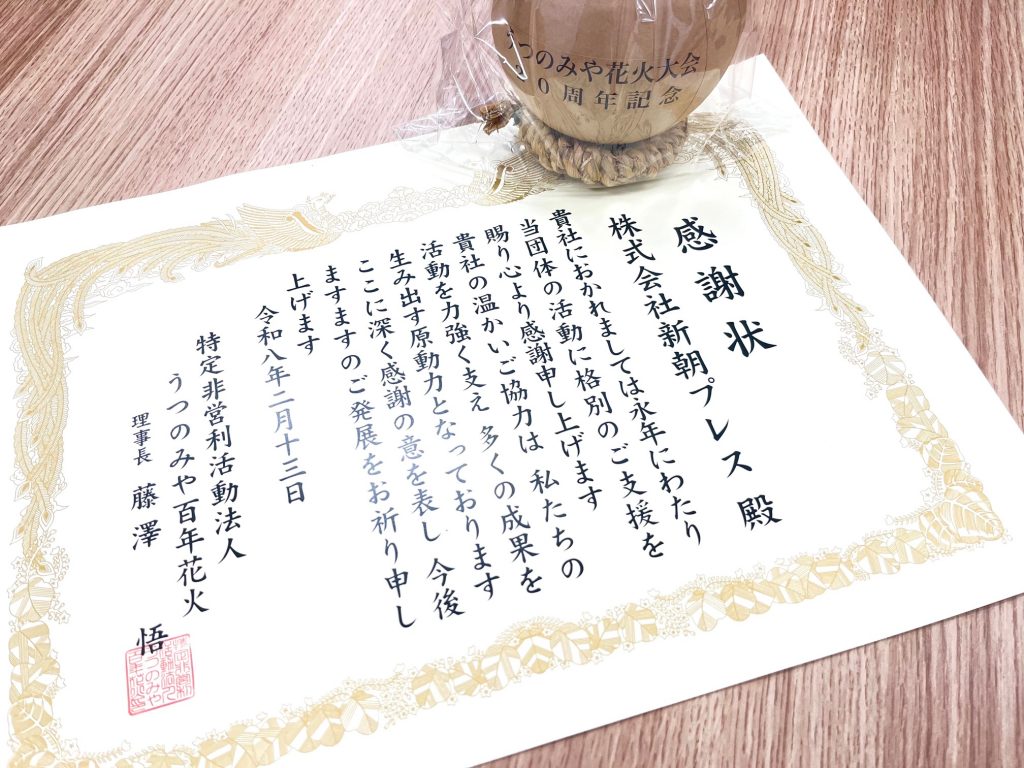 うつのみや花火大会
0周年記念
感謝状
株式会社新朝プレス 殿
貴社におかれましては永年にわたり
当団体の活動に格別のご支援を
賜り心より感謝申し上げます
貴社の温かいご協力は 私たちの
活動を力強く支え 多くの成果を
生み出す原動力となっております
ここに深く感謝の意を表し 今後
ますますのご発展をお祈り申し
上げます
令和八年二月十三日
特定非営利活動法人
うつのみや百年花火
理事長 藤澤 悟